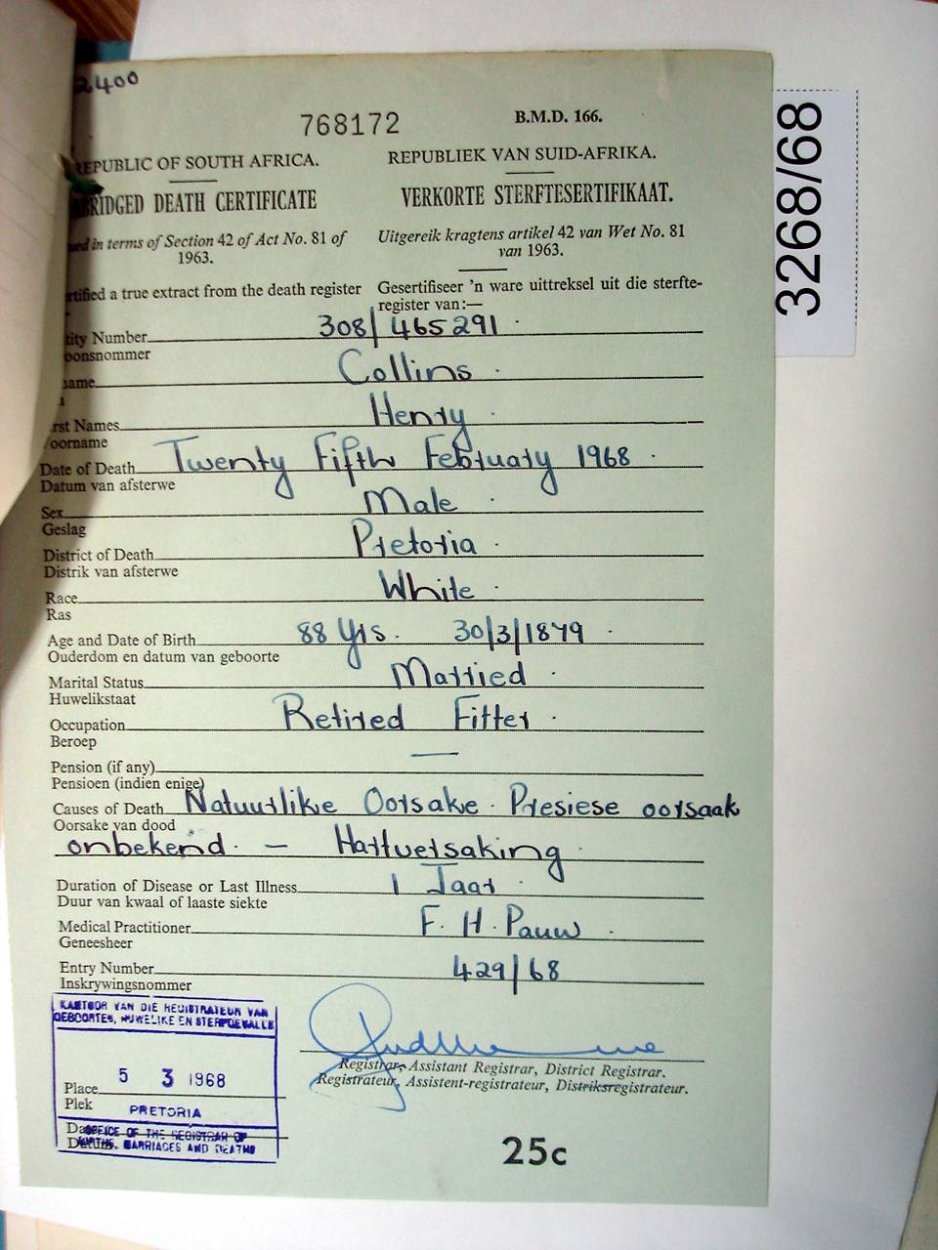 2400
768172
B.M.D. 166.
REPUBLIC OF SOUTH AFRICA.
REPUBLIEK VAN SUID-AFRIKA.
BRIDGED DEATH CERTIFICATE
VERKORTE STERFTESERTIFIKAAT.
ued in terms of Section 42 of Act No. 81 of
1963.
Uitgereik kragtens artikel 42 van Wet No. 81
van 1963.
rtified a true extract from the death register
Gesertifiseer 'n ware uittreksel uit die sterfte-
register van:—
3268/68
tity Number 308/465291.
oonsnommer
name Collins.
rst Names Henry.
oorname
Date of Death Twenty Fifth February 1968.
Datum van afsterwe
Sex Male.
Geslag
District of Death Pretoria.
Distrik van afsterwe
Race White.
Ras
Age and Date of Birth 88 Yrs. 30/3/1879.
Ouderdom en datum van geboorte
Marital Status Married.
Huwelikstaat
Occupation Retired Fitter.
Beroep
Pension (if any) —
Pensioen (indien enige)
Causes of Death Natuurlike Oorsake. Presiese oorsaak
Oorsake van dood
onbekend. — Hartversaking.
Duration of Disease or Last Illness 1 Jaar.
Duur van kwaal of laaste siekte
Medical Practitioner F. H. Pauw.
Geneesheer
Entry Number 429/68
Inskrywingsnommer
KANTOOR VAN DIE REGISTRATEUR VAN
GEBOORTES, HUWELIKE EN STERFGEVALLE
Registrar, Assistant Registrar, District Registrar.
Registrateur, Assistent-registrateur, Distriksregistrateur.
5 3 1968
Place
Plek
PRETORIA
OFFICE OF THE REGISTRAR OF
BIRTHS, MARRIAGES AND DEATHS
25c